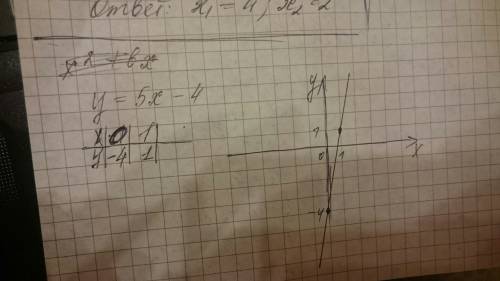 Ответ: x₁ = 4, x₂ = 2
y = 5x - 4
x | 0 | 1
y | -4 | 1
y
1
0 1 x
-4